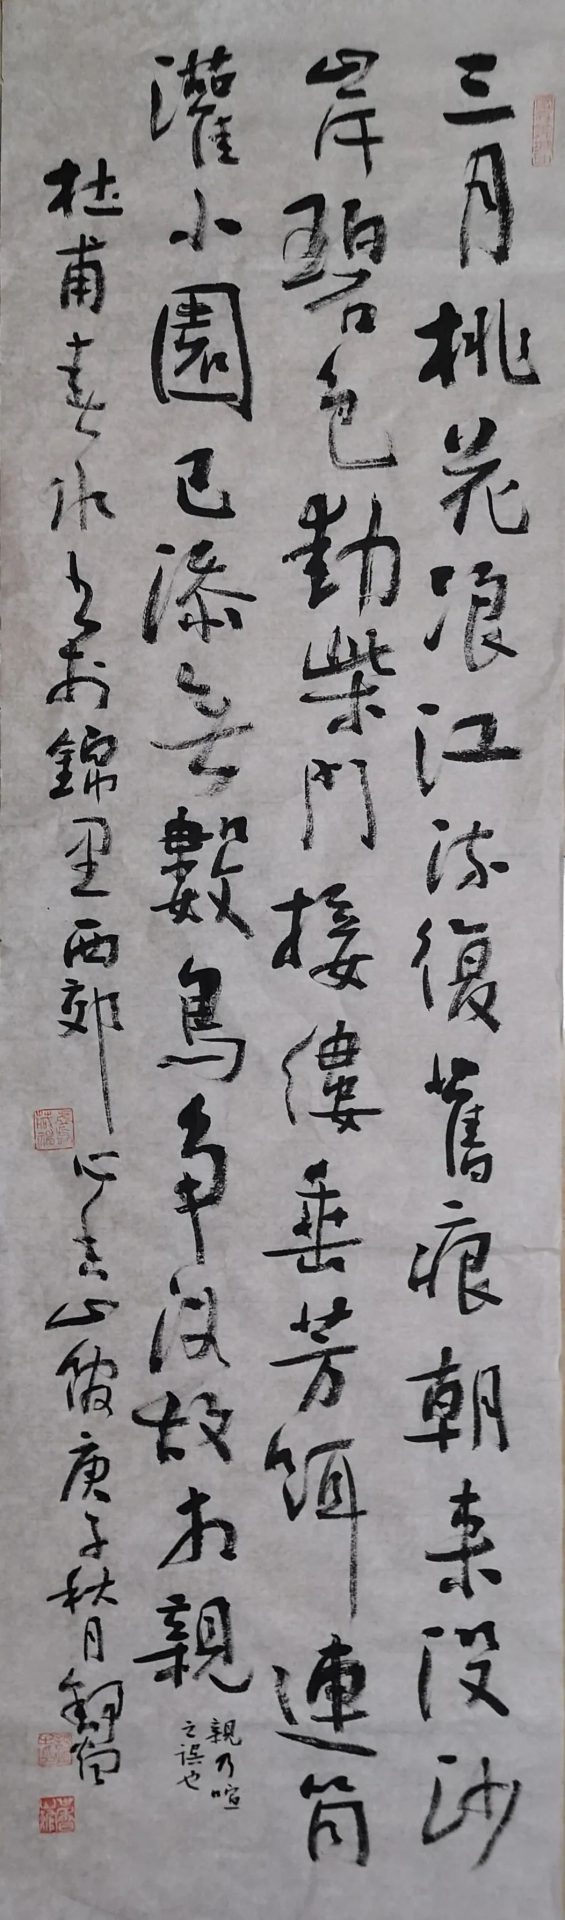 三月桃花浪江流復舊痕朝来没沙
岸碧色動柴門接縷垂芳餌連筒
灌小園已添無數鳥争浴故相親
親乃喧
之誤也
杜甫春水 於錦里西郊 心 山 庚子秋月